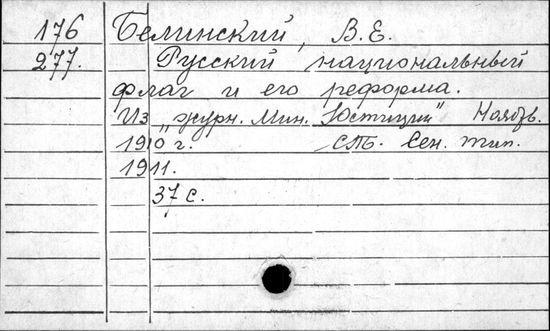 176 Белинский, В.Е.
277. Русский национальный
флаг и его реформа.
Из „журн. Мин. Юстиции" Ноябрь.
1910 г. СПб. Сен. тип.
1911.
37 с.